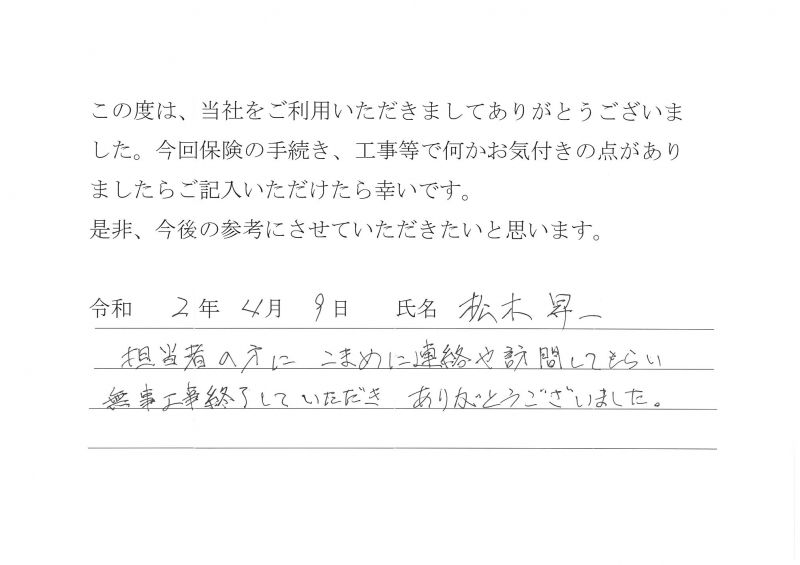 この度は、当社をご利用いただきましてありがとうございま
した。今回保険の手続き、工事等で何かお気付きの点があり
ましたらご記入いただけたら幸いです。
是非、今後の参考にさせていただきたいと思います。
令和 2年 4月 9日 氏名 松木 昇一
担当者の方に こまめに連絡や訪問してもらい
無事工事終了していただき ありがとうございました。